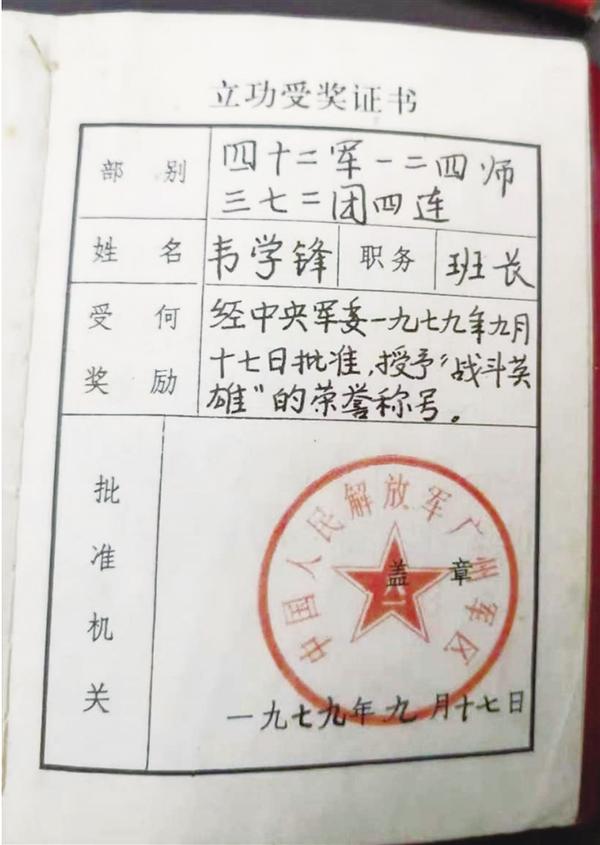 立功受奖证书
部别
四十二军一二四师
三七二团四连
姓名
韦学锋
职务
班长
受何
奖励
经中央军委一九七九年九月
十七日批准，授予“战斗英
雄”的荣誉称号。
批准机关
中国人民解放军广州军区
盖章
一九七九年九月十七日